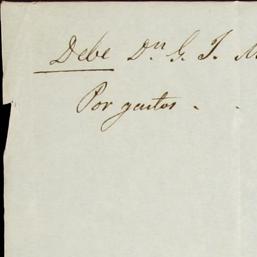 Debe Dn G. J. M
Por gastos